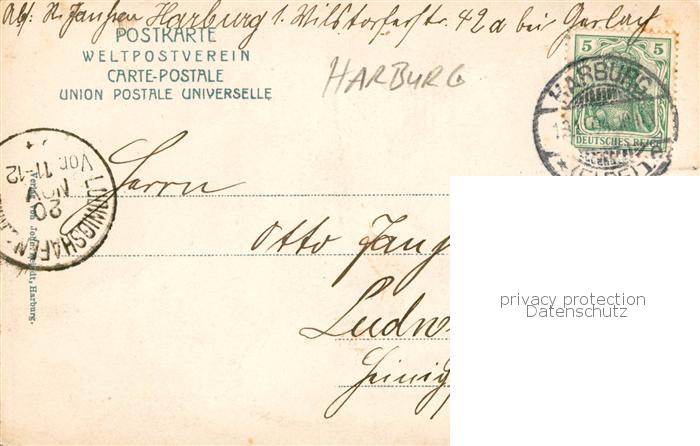 Abs: H. Janssen Harburg 1. Wilstorferstr. 42a bei Gerlach
POSTKARTE
WELTPOSTVEREIN
CARTE-POSTALE
UNION POSTALE UNIVERSELLE
HARBURG
5 5
DEUTSCHES REICH
HARBURG
(ELBE) 1.
LUDWIGSHAFEN
20 NOV
Vor. 11-12
Verlag von Harburg.
Herrn
Otto
privacy protection
Datenschutz